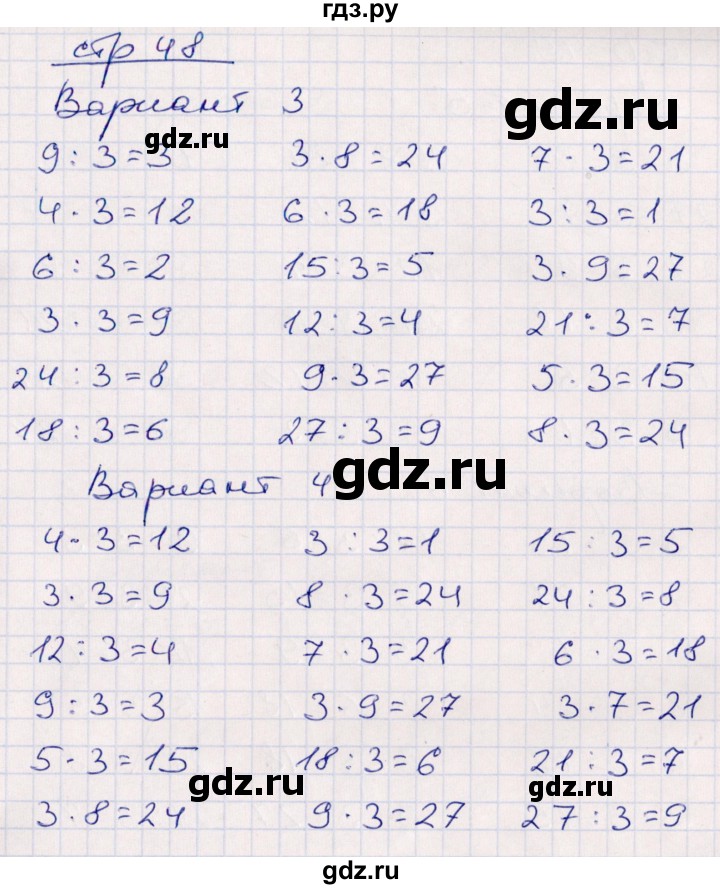 гдз.ру
стр 48
Вариант 3
gdz.ru
gdz.ru
9 : 3 = 3 3 · 8 = 24 7 · 3 = 21
4 · 3 = 12 6 · 3 = 18 3 : 3 = 1
6 : 3 = 2 15 : 3 = 5 3 · 9 = 27
3 · 3 = 9 12 : 3 = 4 21 : 3 = 7
24 : 3 = 8 9 · 3 = 27 5 · 3 = 15
18 : 3 = 6 27 : 3 = 9 8 · 3 = 24
Вариант 4
gdz.ru
4 · 3 = 12 3 : 3 = 1 15 : 3 = 5
3 · 3 = 9 8 · 3 = 24 24 : 3 = 8
12 : 3 = 4 7 · 3 = 21 6 · 3 = 18
9 : 3 = 3 3 · 9 = 27 3 · 7 = 21
5 · 3 = 15 18 : 3 = 6 21 : 3 = 7
gdz.ru
gdz.ru
3 · 8 = 24 9 · 3 = 27 27 : 3 = 9
gdz.ru